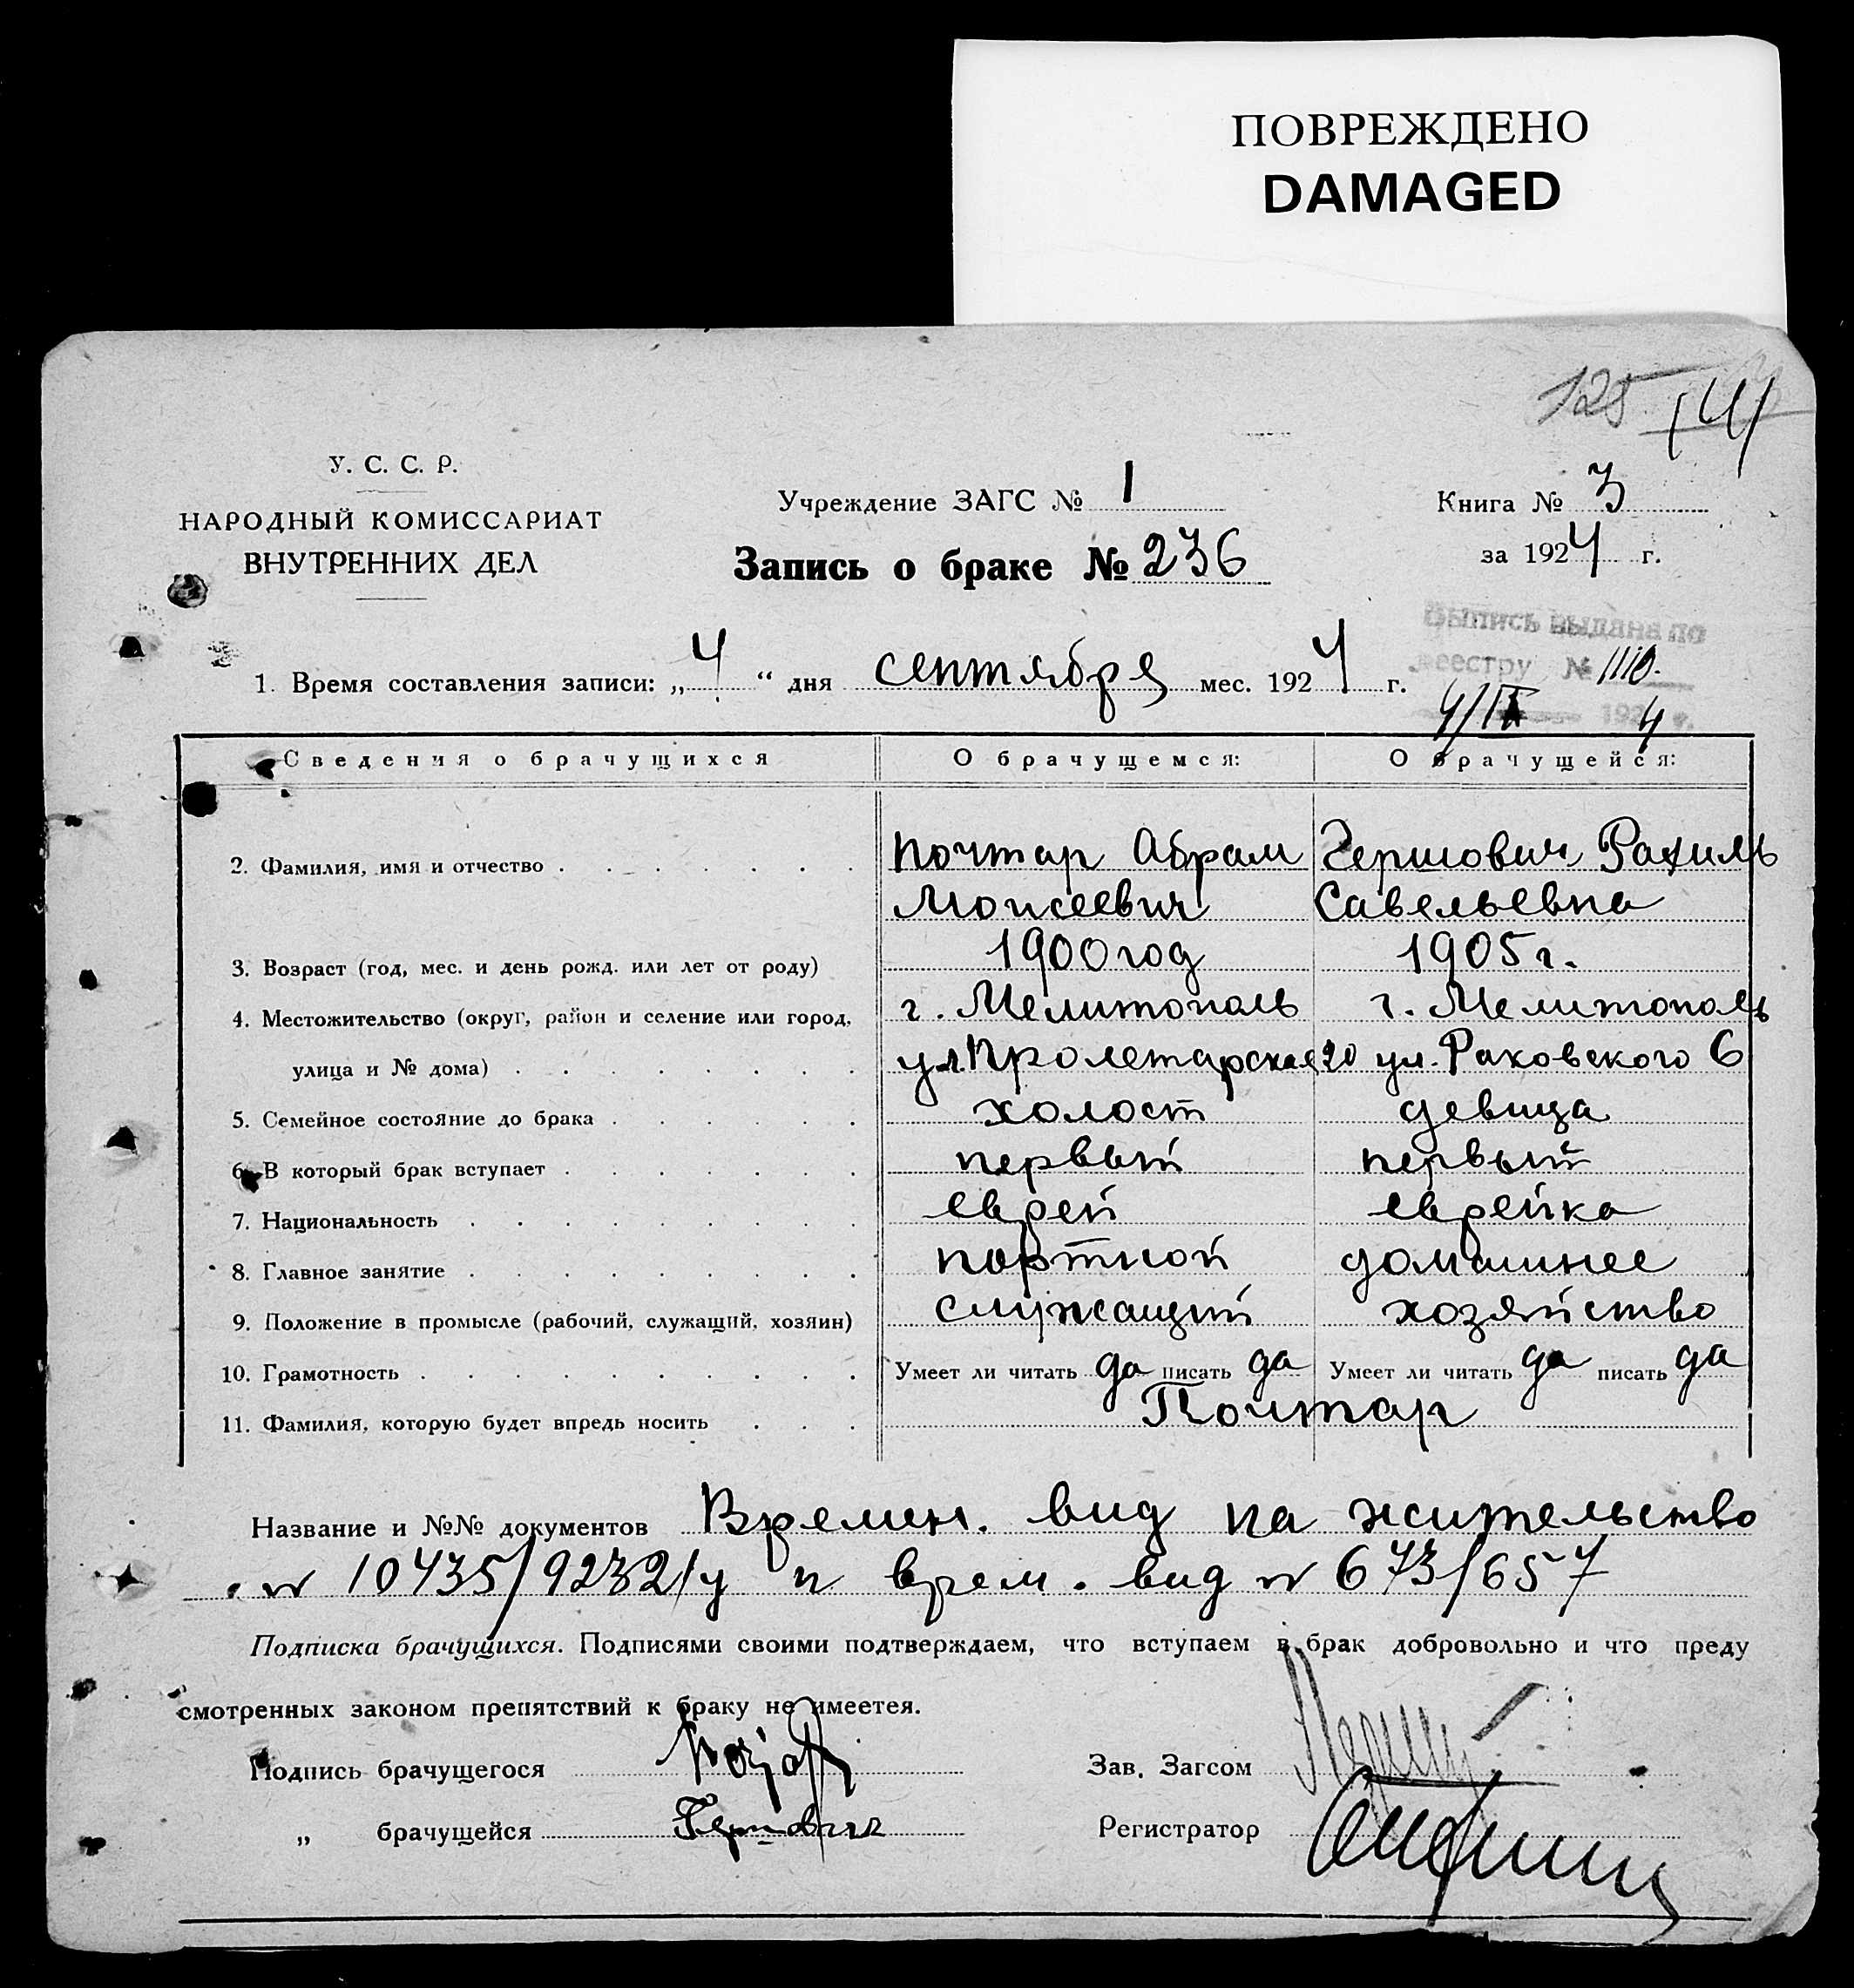 ПОВРЕЖДЕНО
DAMAGED
125
У. С. С. Р.
НАРОДНЫЙ КОМИССАРИАТ
ВНУТРЕННИХ ДЕЛ
Учреждение ЗАГС № 1
Запись о браке № 236
Книга № 3
за 1924 г.
Выпись выдана по
реестру № 1110.
4/IX 1924 г.
1. Время составления записи: „4“ дня сентября мес. 1924 г.
Сведения о брачущихся О брачущемся: О брачущейся:
2. Фамилия, имя и отчество Почтар Абрам Гершович Рахиль
Моисеевич Савельевна
3. Возраст (год, мес. и день рожд. или лет от роду) 1900 год 1905 г.
4. Местожительство (округ, район и селение или город, г. Мелитополь г. Мелитополь
улица и № дома) ул. Пролетарская 20 ул. Раковского 6
5. Семейное состояние до брака холост девица
6. В который брак вступает первый первый
7. Национальность еврей еврейка
8. Главное занятие портной домашнее
9. Положение в промысле (рабочий, служащий, хозяин) служащий хозяйство
10. Грамотность Умеет ли читать да писать да Умеет ли читать да писать да
11. Фамилия, которую будет впредь носить Почтар
Название и №№ документов Времен. вид на жительство
№ 10435/9232/у и врем. вид № 673/657
Подписка брачущихся. Подписями своими подтверждаем, что вступаем в брак добровольно и что преду
смотренных законом препятствий к браку не имеется.
Подпись брачущегося Зав. Загсом
„ брачущейся Гершович Регистратор